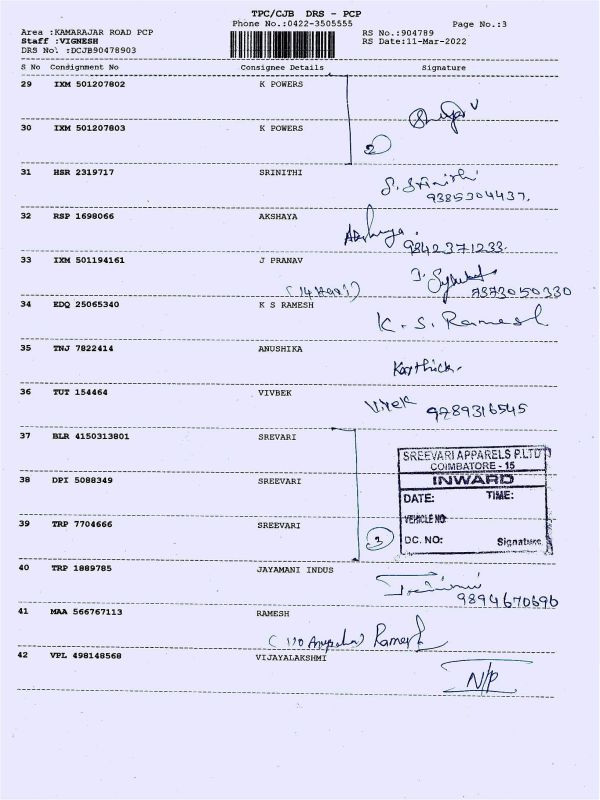 TPC/CJB DRS - PCP
Phone No.:0422-3505555
Page No.:3
Area :KAMARAJAR ROAD PCP
RS No.:904789
Staff :VIGNESH
RS Date:11-Mar-2022
DRS No1 :DCJB90478903
S No Consignment No Consignee Details Signature
29 IXM 501207802 K POWERS
30 IXM 501207803 K POWERS
2
31 HSR 2319717 SRINITHI
S. Srinithi
9385304437.
32 RSP 1698066 AKSHAYA
Akshaya
9842371233.
33 IXM 501194161 J PRANAV
7373050330
34 EDQ 25065340 K S RAMESH
K. S. Ramesh
35 TNJ 7822414 ANUSHIKA
Karthick.
36 TUT 154464 VIVBEK
Vivek 9789316545
37 BLR 4150313801 SREVARI
38 DPI 5088349 SREEVARI
39 TRP 7704666 SREEVARI
3
SREEVARI APPARELS P.LTD
COIMBATORE - 15
INWARD
DATE: TIME:
VEHICLE NO
DC. NO: Signature
40 TRP 1889785 JAYAMANI INDUS
9894670696
41 MAA 566767113 RAMESH
Ramesh
42 VPL 498148568 VIJAYALAKSHMI
N/P